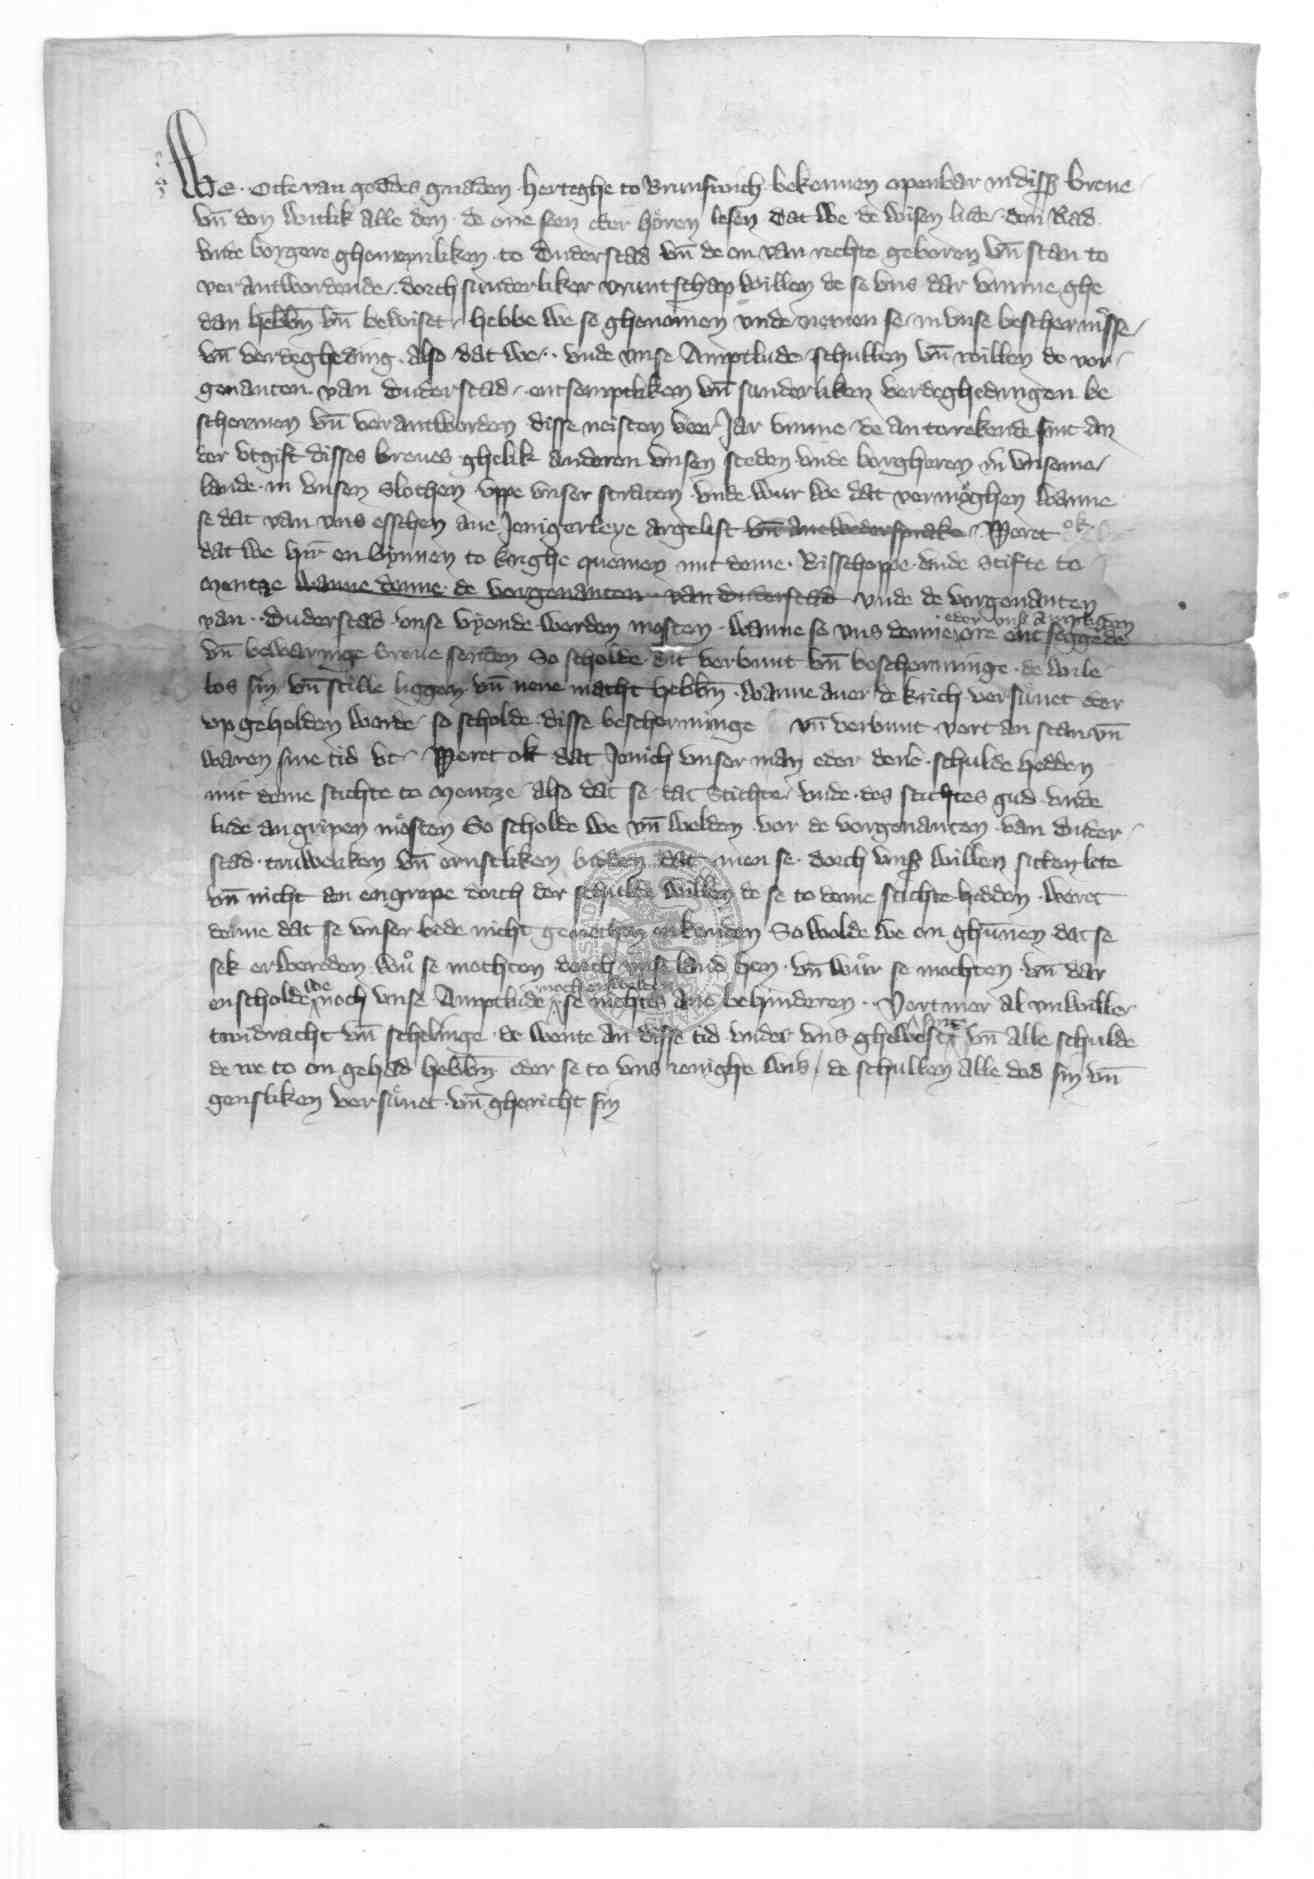 We · Otte van goddes gnaden · herteghe to Brunswich · bekennen openbar in disse breue
vn̄ don witlik alle den · de one seen eder hören lesen Dat we de wisen lude · den Rad
vnde borgere ghemeynliken · to Duderstad vn̄ de on van rechte geboren vn̄ stan to
verantwordende · dorch sunderliker vruntschap willen de se vns dar vmme ghe
dan hebbn̄ vn̄ bewiset · hebbe we se ghenomen vnde nemen se in vnse
vn̄ verdegheding · also dat we · vnde vnse Amptlude schullen vn̄ willen de vor
genanten van Duderstad · entsemptliken vn̄ sunderliken verdeghedingen be
schermen vn̄ verantworden disse neisten veer Jar vmme de an torekende sint an
der vtgift disses breues ghelik anderen vnsen steden vnde borgheren in vnseme
lande · in vnsen Slothen vppe vnser straten vnde wur we dat vermöghen wanne
se dat van vns esschen ane Jenigerleye argelist vn̄ ane wedersprake · Weret ok
dat we hir en bynnen to krighe quemen mit deme · Bisschoppe vnde Stifte to
Mentze wanne denne · de vorgenanten van Duderstad vnde de vorgenanten
van · Duderstad vnse vyende werden mosten · wanne se vns denne eder vnsen amptluden ore entseggede
vn̄ bewaringe breue senden So scholde dit verbunt vn̄ bescherminge · de wile
los sin vn̄ stille liggen vn̄ nene macht hebbn̄ · wanne auer de krich versunet eder
vp geholden worde · so scholde disse bescherminge vn̄ verbunt vort an stan vn̄
waren sine tid vt · Weret ok dat Jenich vnser man eder dene · schulde hedden
mit deme stichte to Mentze also dat se dat Stichte vnde des stichtes gud vnde
lude an gripen mösten So scholde we vn̄ welden vor de vorgenanten van Duder
stad · truweliken vn̄ ernstliken bidden dat men se dorch vnser willen sitten lete
vn̄ nicht an en grepe dorch der schulde willen de se to deme stichte hedden · weret
denne dat se vnser bede nicht geneten enkonden So wolde we on ghünnen dat se
sek erwereden wů se mochten dorch vnse land hen vn̄ wůr se mochten vn̄ dar
enscholde we noch vnse Amptlude noch enwolden se nichtes ane behinderen · Vortmer al vnwille
twidracht vn̄ schelinge · de wente an disse tid vnder vns ghewest sint vn̄ alle schulde
de we to on gehad hebbn̄ eder se to vns ienighe wis / de schullen alle dod sin vn̄
gensliken versůnet vn̄ ghericht sin